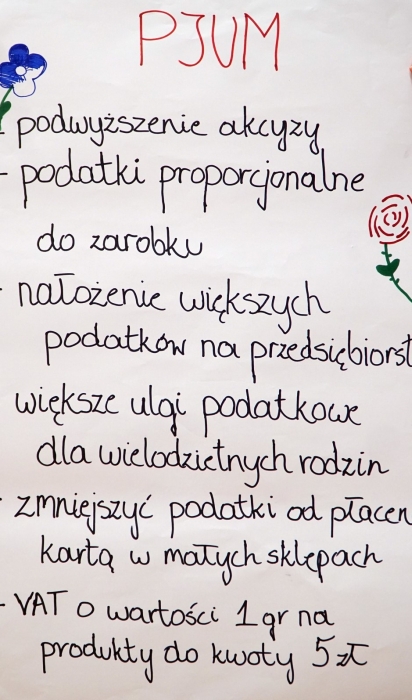 PJUM
- podwyższenie akcyzy
- podatki proporcjonalne
do zarobku
- nałożenie większych
podatków na przedsiębiorst
większe ulgi podatkowe
dla wielodzietnych rodzin
- zmniejszyć podatki od płacen
kartą w małych sklepach
- VAT o wartości 1 gr na
produkty do kwoty 5 zł